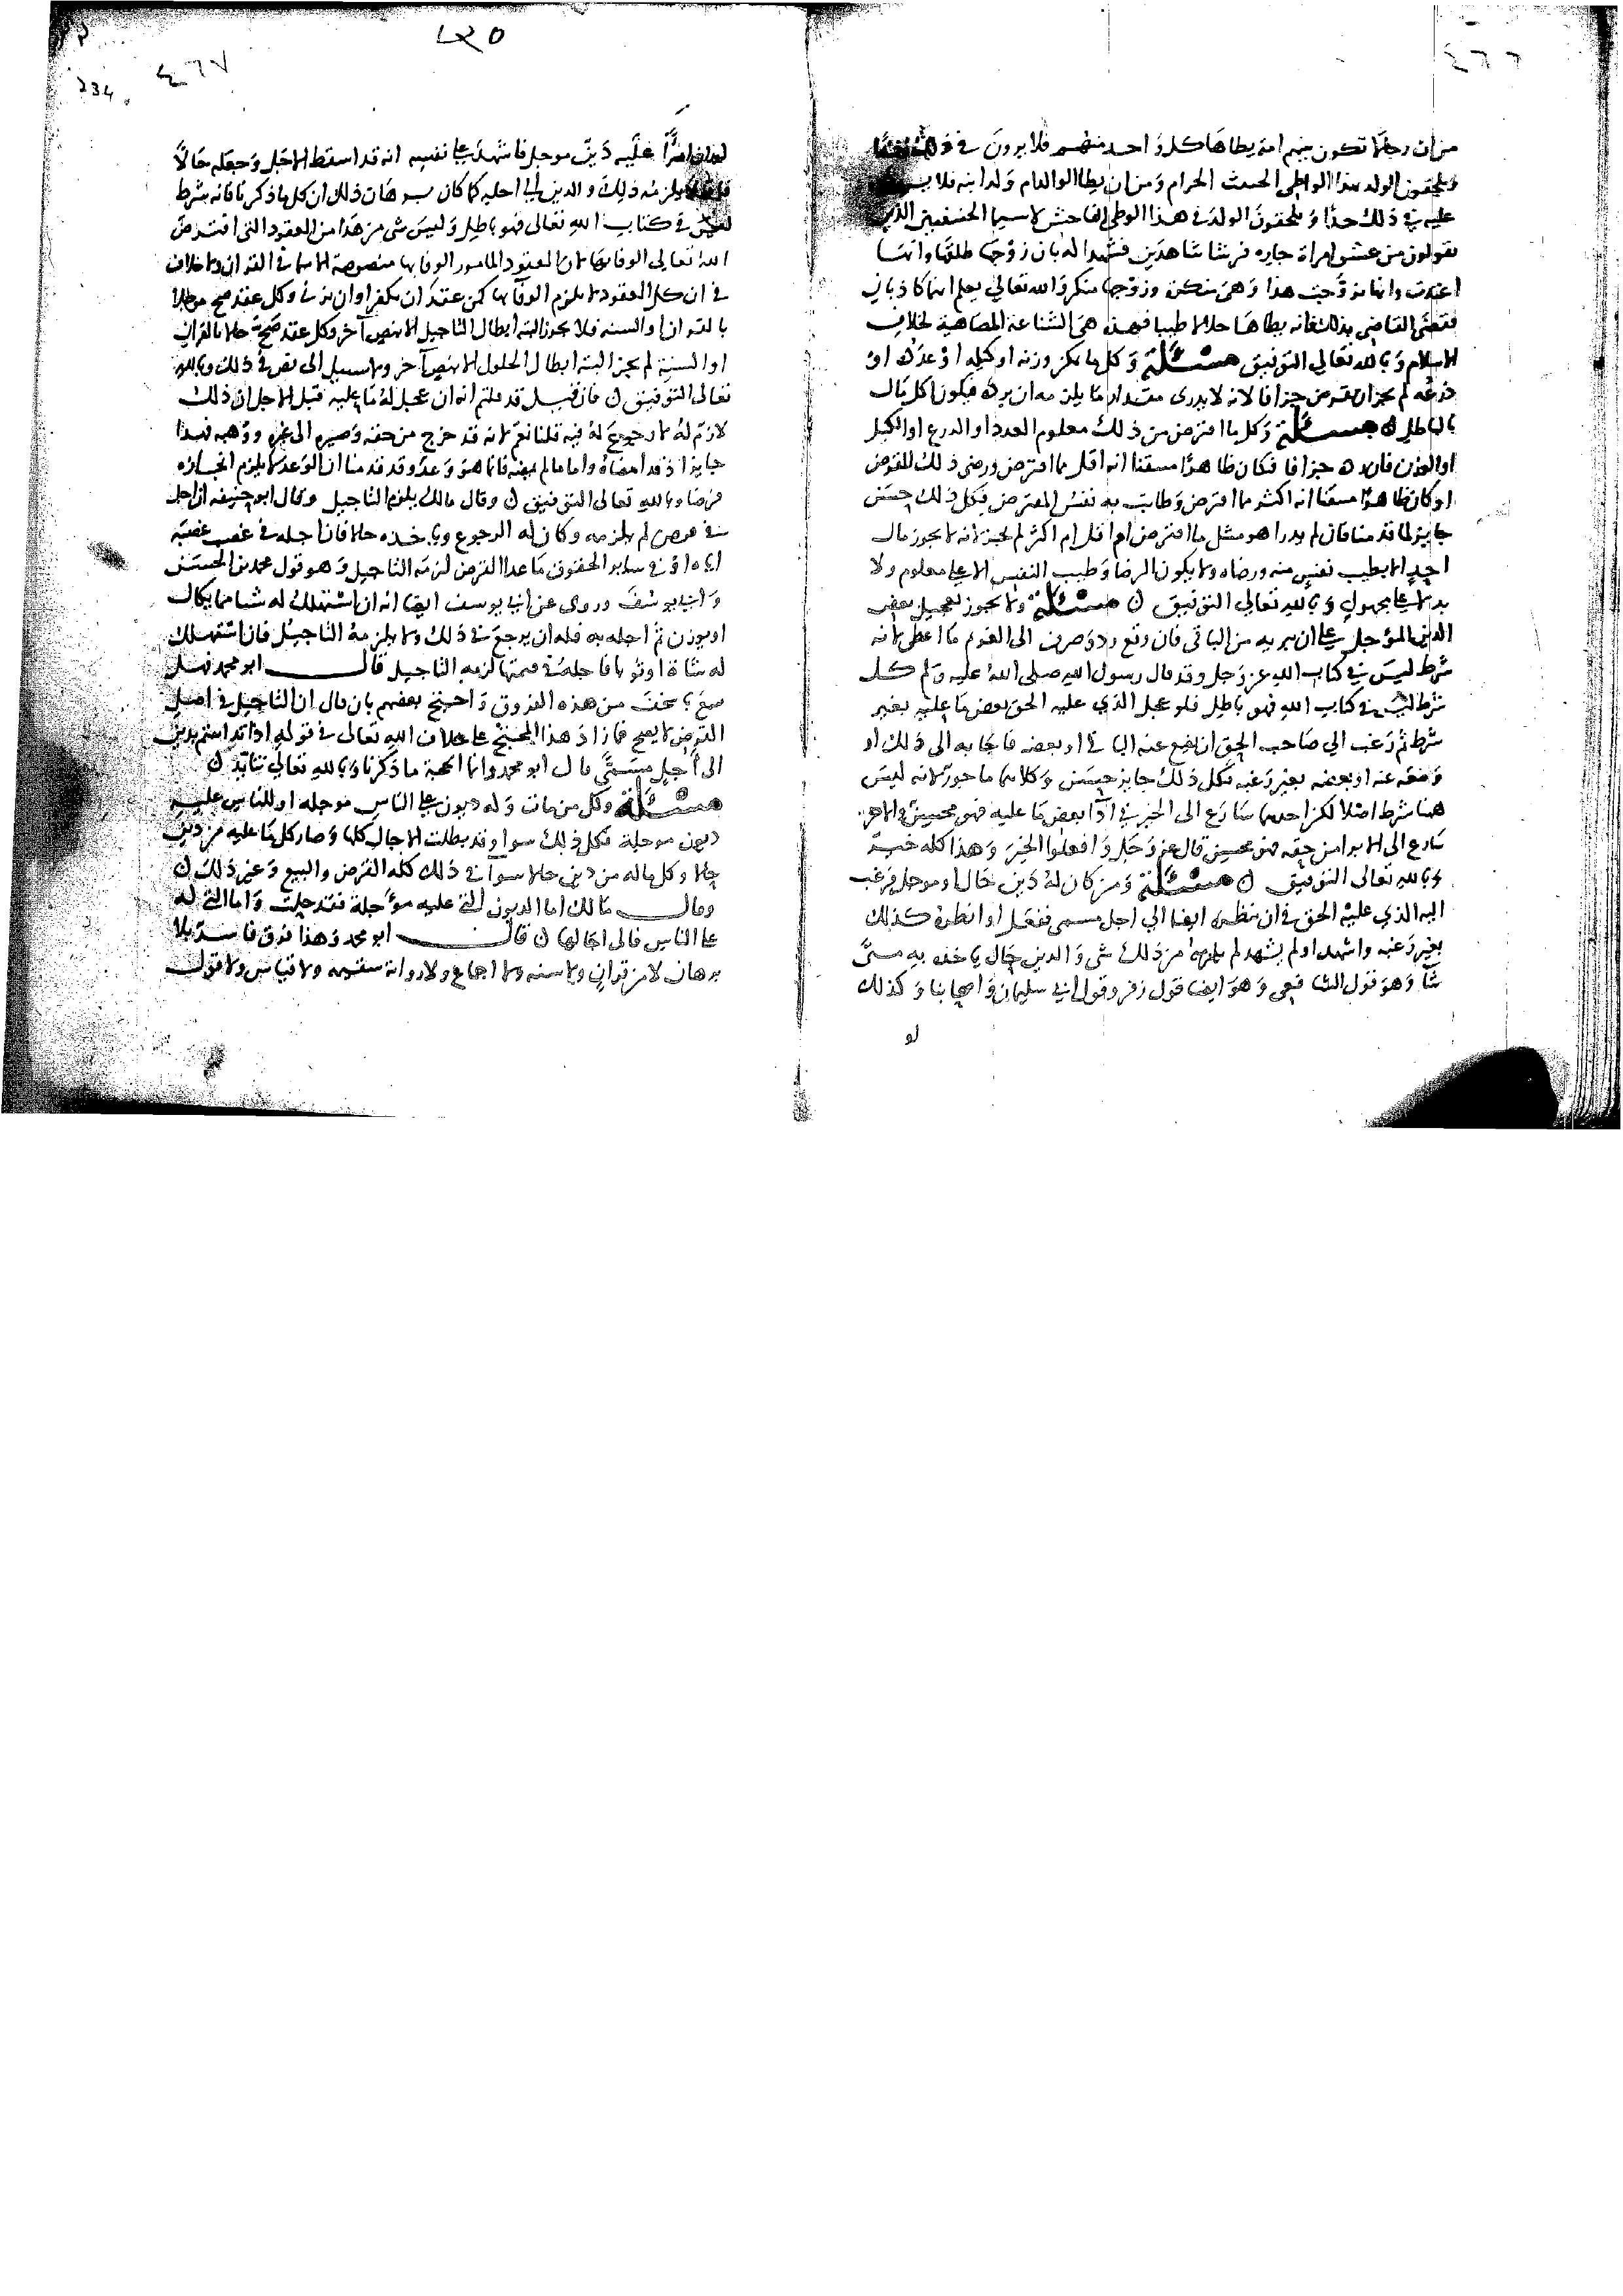 ٤٦٦
من ان رجلا تكون بينهم امة يطاها كل واحد منهم فلا يرون في ذلك
ويلحقون الولد بهذا الواطي الخبيث الحرام ومن ان يطا الوالد ام ولد ابنه فلا
عليه في ذلك حدا ويلحقون الولد في هذا الوطي الفاحش لا سيما الحنفيين الذين
يقولون من عشق امراة جاره فرشا شاهدين فشهدا له بان زوجها طلقها وانها
اعتدت وانها تزوجت هذا وهي تنكر وزوجها منكر والله تعالى يعلم انهما كاذبان
فقضى القاضي بذلك فانه يطاها حلالا طيبا فهذه هي الشناعة المضاهية لخلاف
الاسلام وبالله تعالى التوفيق مسئلة وكل ما يمكن وزنه او كيله او عدّه او
ذرعه لم يجز ان يقرض جزافا لانه لا يدرى مقدار ما يلزمه ان يرده فيكون اكل مال
بالباطل ن مسئلة وكل ما اقترض من ذلك معلوم العدد او الذرع او الكيل
او الوزن فان رده جزافا فكان ظاهرا متيقنا انه اقل مما اقترض ورضي ذلك المقرض
او كان ظاهرا متيقنا انه اكثر مما اقترض وطابت به نفس المقترض فكل ذلك حسن
جايز لما قدمنا فان لم يدر اهو مثل ما اقترض ام اقل ام اكثر لم يجز لانه لا يجوز مال
احد الا بطيب نفس منه ورضاه ولا يكون الرضا وطيب النفس الا على معلوم ولا
بد لا على مجهول وبالله تعالى التوفيق ن مسئلة ولا يجوز تعجيل بعض
الدين المؤجل على ان يبريه من الباقي فان وقع رد وصرف الى الغريم ما اعطى لانه
شرط ليس في كتاب الله عز وجل وقد قال رسول الله صلى الله عليه وسلم كل
شرط ليس في كتاب الله فهو باطل فلو عجل الذي عليه الحق بعض ما عليه بغير
شرط ثم رغب الى صاحب الحق ان يضع عنه الباقي او بعضه فاجابه الى ذلك او
وضعه عنه او بعضه بغير رغبه فكل ذلك جايز حسن وكلاهما ماجور لانه ليس
هنا شرط اصلا لكن احدهما سارع الى الخير في ادا بعض ما عليه فهو محسن والاخر
سارع الى الابرا من حقه فهو محسن قال عز وجل وافعلوا الخير وهذا كله خير
وبالله تعالى التوفيق ن مسئلة ومن كان له دين حال او موجل فرغب
اليه الذي عليه الحق في ان ينظره ايضا الى اجل مسمى ففعل او انظره كذلك
بغير رغبه واشهد او لم يشهد لم يلزمه من ذلك شي والدين حال ياخذه به متى
شا وهو قول الشافعي وهو ايضا قول زفر وقول ابي سليمان واصحابنا وكذلك
لو
٤٦٧
234
لو ان امرا عليه دين موجل فاشهد على نفسه انه قد اسقط الاجل وجعله حالا
فانه لا يلزمه ذلك والدين الى اجله كما كان برهان ذلك ان كل ما ذكرنا فانه شرط
ليس في كتاب الله تعالى فهو باطل وليس شي من هذا من العقود التي افترض
الله تعالى الوفا بها لان العقود المامور الوفا بها منصوصة الاسما في القران ولا خلاف
في ان كل العقود لا يلزم الوفا بها كمن عقد ان يكفر او ان يزني وكل عقد صح موجلا
بالقران او السنه فلا يجوز البته ابطال التاجيل الا بنص آخر وكل عقد صح حالا بالقران
او السنه لم يجز البته ابطال الحلول الا بنص آخر ولا سبيل الى نص في ذلك وبالله
تعالى التوفيق ن فان قيل قد قلتم انه ان عجل له ما عليه قبل الاجل ان ذلك
لازم له لا رجوع له فيه قلنا نعم لانه قد خرج من حقه وصيره الى غيره ووهبه فهذا
جايز اذ قد امضاه واما ما لم يمضه فانما هو وعد وقد قدمنا ان الوعد لا يلزم انجازه
فرضا وبالله تعالى التوفيق ن وقال مالك يلزم التاجيل وقال ابو حنيفه ان اجله
في قرض لم يلزمه وكان له الرجوع وياخذه حالا فان اجله في غصب غصبه
اياه او في ساير الحقوق ما عدا القرض لزمه التاجيل وهو قول محمد بن الحسن
وابي يوسف وروي عن ابي يوسف ايضا انه ان استهلك له شيا مما يكال
او يوزن ثم اجله به فله ان يرجع في ذلك ولا يلزمه التاجيل فان استهلك
له شاة او ثوبا فاجله في قيمتها لزمه التاجيل قال ابو محمد فهل
سمع باسخف من هذه الفروق واحتج بعضهم بان قال ان التاجيل في اصل
القرض لا يصح فما زاد هذا المحتج على خلاف الله تعالى في قوله اذا تداينتم بدين
الى أجل مسمى قال ابو محمد وانما الحجة ما ذكرنا وبالله تعالى نتايد ن
مسئلة وكل من مات وله ديون على الناس موجله او للناس عليه
ديون موجلة فكل ذلك سوا وقد بطلت الاجال كلها وصار كل ما عليه من دين
حالا وكل ماله من دين حالا سوا في ذلك كله القرض والبيع وغير ذلك ن
وقال مالك اما الديون التي عليه مؤجلة فقد حلت واما التي له
على الناس فالى اجالها ن قال ابو محمد وهذا فرق فاسد بلا
برهان لا من قران ولا سنه ولا اجماع ولا رواية سقيمه ولا قياس ولا قول